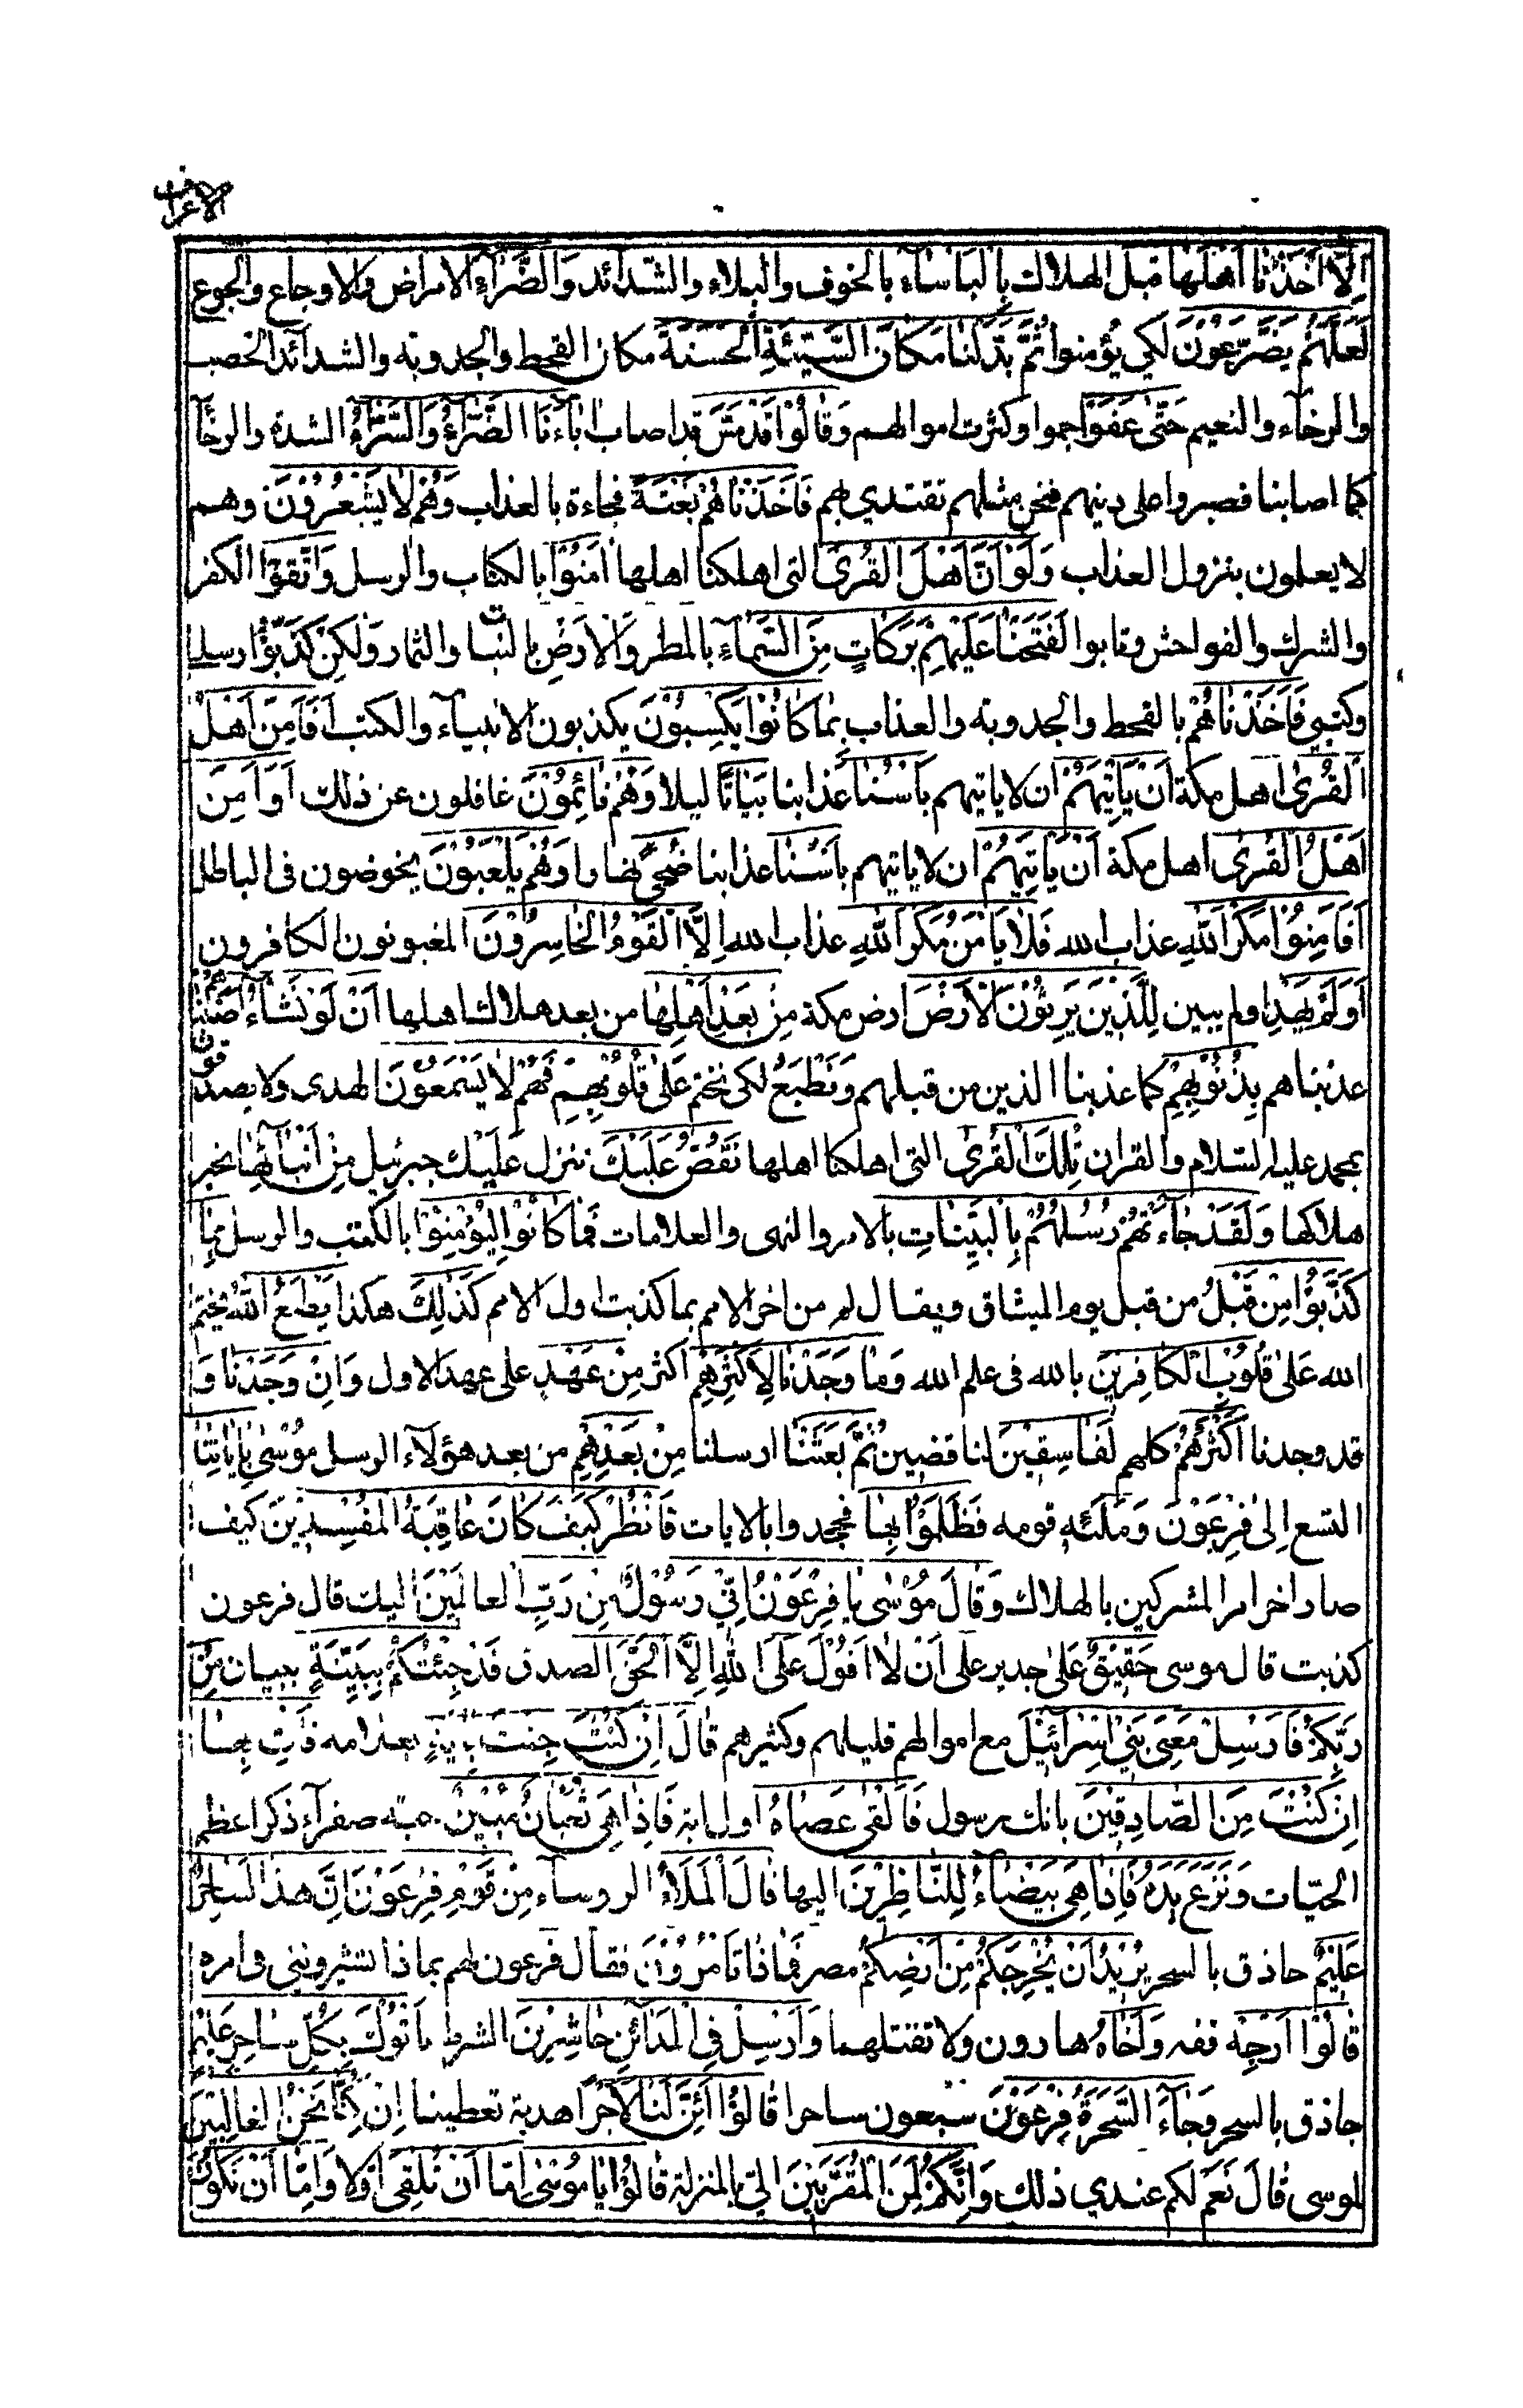 الاعراف
اِلَّا اَخَذْنَا اَهْلَهَا قبل الهلاك بِالْبَاْسَاءِ بالخوف والبلاء والشدائد وَالضَّرَّاءِ الامراض والاوجاع والجوع
لَعَلَّهُمْ يَضَّرَّعُوْنَ لكي يؤمنوا ثُمَّ بَدَّلْنَا مَكَانَ السَّيِّئَةِ الْحَسَنَةَ مكان القحط والجدوبة والشدائد الخصب
والرخاء والنعيم حَتّٰى عَفَوْا جموا وكثرت اموالهم وَقَالُوْا قَدْ مَسَّ قد اصاب اٰبَاءَنَا الضَّرَّاءُ وَالسَّرَّاءُ الشدة والرخاء
كما اصابنا فصبروا على دينهم فنحن مثلهم نقتدي بهم فَاَخَذْنَاهُمْ بَغْتَةً فجاءة بالعذاب وَهُمْ لَا يَشْعُرُوْنَ وهم
لا يعلمون بنزول العذاب وَلَوْ اَنَّ اَهْلَ الْقُرٰى التى اهلكنا اهلها اٰمَنُوْا بالكتاب والرسل وَاتَّقَوْا الكفر
والشرك والفواحش وتابوا لَفَتَحْنَا عَلَيْهِمْ بَرَكَاتٍ مِنَ السَّمَاءِ بالمطر وَالْاَرْضِ بالنبات والثمار وَلٰكِنْ كَذَّبُوْا رسلى
وكتبى فَاَخَذْنَاهُمْ بالقحط والجدوبة والعذاب بِمَا كَانُوْا يَكْسِبُوْنَ يكذبون الانبياء والكتب اَفَاَمِنَ اَهْلُ
الْقُرٰى اهل مكة اَنْ يَاْتِيَهُمْ ان لا ياتيهم بَاْسُنَا عذابنا بَيَاتًا ليلا وَهُمْ نَائِمُوْنَ غافلون عن ذلك اَوَ اَمِنَ
اَهْلُ الْقُرٰى اهل مكة اَنْ يَاْتِيَهُمْ ان لا ياتيهم بَاْسُنَا عذابنا ضُحًى نهارا وَهُمْ يَلْعَبُوْنَ يخوضون فى الباطل
اَفَاَمِنُوْا مَكْرَ اللّٰهِ عذاب الله فَلَا يَاْمَنُ مَكْرَ اللّٰهِ عذاب الله اِلَّا الْقَوْمُ الْخَاسِرُوْنَ المغبونون الكافرون
اَوَلَمْ يَهْدِ اولم يبين لِلَّذِيْنَ يَرِثُوْنَ الْاَرْضَ ارض مكة مِنْ بَعْدِ اَهْلِهَا من بعد هلاك اهلها اَنْ لَوْ نَشَاءُ اَصَبْنَاهُمْ
عذبناهم بِذُنُوْبِهِمْ كما عذبنا الذين من قبلهم وَنَطْبَعُ لكى نختم عَلٰى قُلُوْبِهِمْ فَهُمْ لَا يَسْمَعُوْنَ الهدى ولا يصدقون
بمحمد عليه السلام والقران تِلْكَ الْقُرٰى التى اهلكنا اهلها نَقُصُّ عَلَيْكَ ننزل عليك جبرئيل مِنْ اَنْبَائِهَا بخبر
هلاكها وَلَقَدْ جَاءَتْهُمْ رُسُلُهُمْ بِالْبَيِّنَاتِ بالامر والنهى والعلامات فَمَا كَانُوْا لِيُؤْمِنُوْا بالكتب والرسل بِمَا
كَذَّبُوْا مِنْ قَبْلُ من قبل يوم الميثاق ويقال لم من اخر الامم بما كذبت اول الامم كَذٰلِكَ هكذا يَطْبَعُ اللّٰهُ يختم
الله عَلٰى قُلُوْبِ الْكَافِرِيْنَ بالله فى علم الله وَمَا وَجَدْنَا لِاَكْثَرِهِمْ اكثر مِنْ عَهْدٍ على عهد الاول وَاِنْ وَجَدْنَا و
قد وجدنا اَكْثَرَهُمْ كلهم لَفَاسِقِيْنَ لناقضين ثُمَّ بَعَثْنَا ارسلنا مِنْ بَعْدِهِمْ من بعد هؤلاء الرسل مُوْسٰى بِاٰيَاتِنَا
التسع اِلٰى فِرْعَوْنَ وَمَلَئِهٖ قومه فَظَلَمُوْا بِهَا فجحدوا بالايات فَانْظُرْ كَيْفَ كَانَ عَاقِبَةُ الْمُفْسِدِيْنَ كيف
صار اخر امر المشركين بالهلاك وَقَالَ مُوْسٰى يَا فِرْعَوْنُ اِنِّيْ رَسُوْلٌ مِنْ رَبِّ الْعَالَمِيْنَ اليك قال فرعون
كذبت قال موسى حَقِيْقٌ عَلٰى جدير على اَنْ لَا اَقُوْلَ عَلَى اللّٰهِ اِلَّا الْحَقَّ الصدق قَدْ جِئْتُكُمْ بِبَيِّنَةٍ ببيان مِنْ
رَبِّكُمْ فَاَرْسِلْ مَعِيَ بَنِيْ اِسْرَائِيْلَ مع اموالهم قليلهم وكثيرهم قَالَ اِنْ كُنْتَ جِئْتَ بِاٰيَةٍ بعلامة فَاْتِ بِهَا
اِنْ كُنْتَ مِنَ الصَّادِقِيْنَ بانك رسول فَاَلْقٰى عَصَاهُ اول اية فَاِذَا هِيَ ثُعْبَانٌ مُبِيْنٌ حية صفراء ذكر اعظم
الحيّات وَنَزَعَ يَدَهُ فَاِذَا هِيَ بَيْضَاءُ لِلنَّاظِرِيْنَ اليها قَالَ الْمَلَاُ الروساء مِنْ قَوْمِ فِرْعَوْنَ اِنَّ هٰذَا لَسَاحِرٌ
عَلِيْمٌ حاذق بالسحر يُرِيْدُ اَنْ يُخْرِجَكُمْ مِنْ اَرْضِكُمْ مصر فَمَاذَا تَاْمُرُوْنَ فقال فرعون لهم بماذا تشيرونني فى امره
قَالُوْا اَرْجِهْ قفه وَاَخَاهُ هارون ولا تقتلهما وَاَرْسِلْ فِى الْمَدَائِنِ حَاشِرِيْنَ الشرط يَاْتُوْكَ بِكُلِّ سَاحِرٍ عَلِيْمٍ
حاذق بالسحر وَجَاءَ السَّحَرَةُ فِرْعَوْنَ سبعون ساحرا قَالُوْا اَئِنَّ لَنَا لَاَجْرًا هدية تعطينا اِنْ كُنَّا نَحْنُ الْغَالِبِيْنَ
لموسى قَالَ نَعَمْ لكم عندي ذلك وَاِنَّكُمْ لَمِنَ الْمُقَرَّبِيْنَ الىّ بالمنزلة قَالُوْا يَا مُوْسٰى اِمَّا اَنْ تُلْقِيَ اولا وَاِمَّا اَنْ نَكُوْنَ